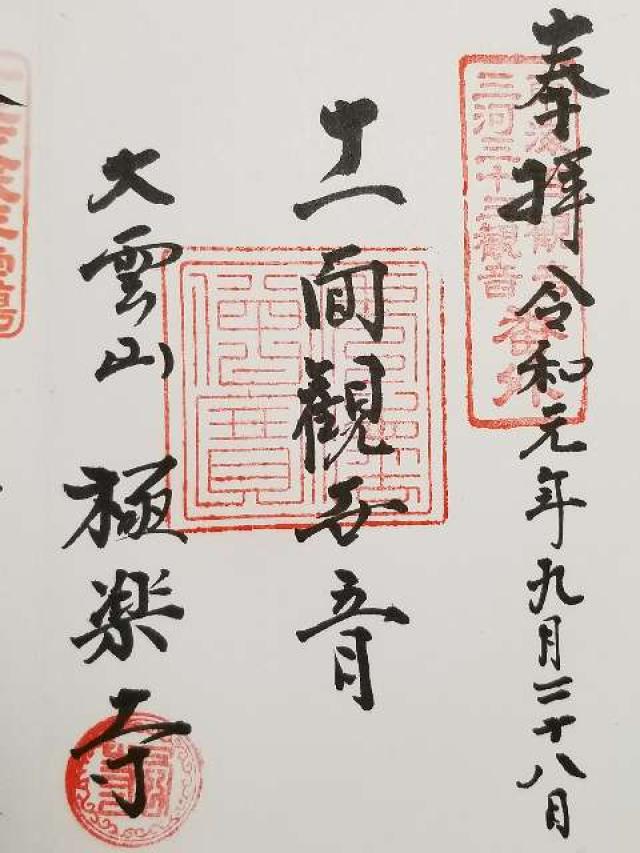 奉拝 令和元年九月二十八日
三河三十三観音
十一面観世音
佛法僧寶
大雲山 極楽寺